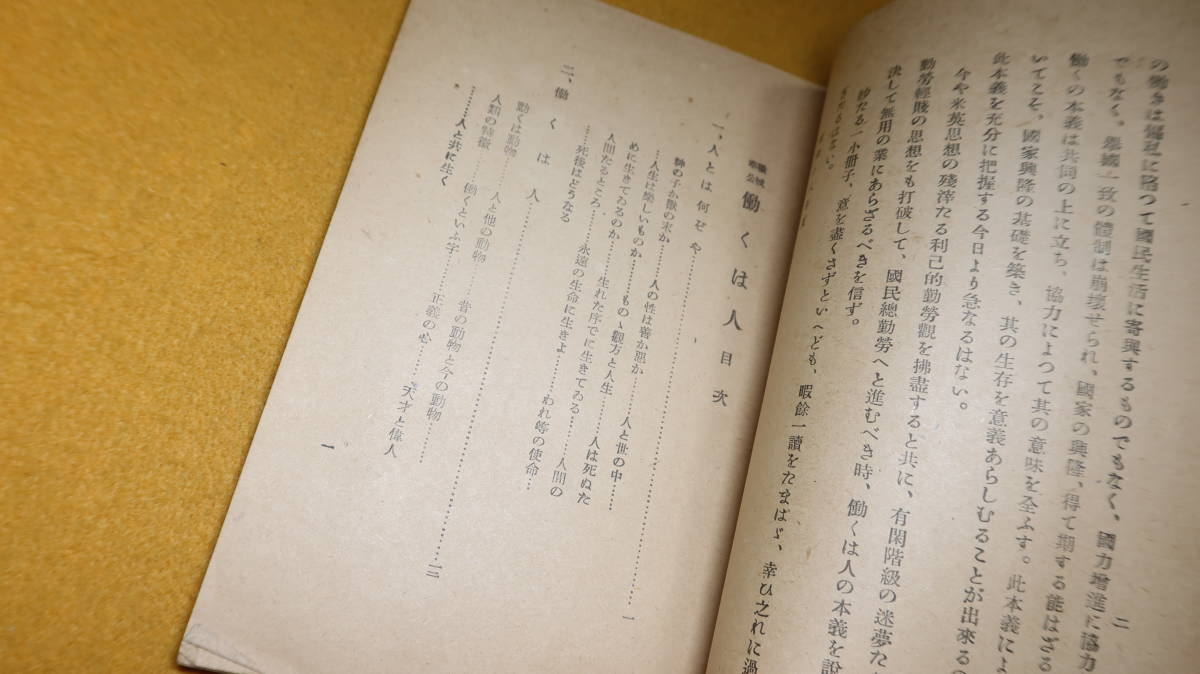 二
の働きは偏私に陷つて國民生活に寄與するものでもなく、國力增進に協力
でもなく、擧國一致の體制は崩壞せられ、國家の興隆、得て期する能はざる
働くの本義は共同の上に立ち、協力によつて其の意味を全ふす。此本義によ
いてこそ、國家興隆の基礎を築き、其の生存を意義あらしむることが出來るの
此本義を充分に把握する今日より急なるはない。
今や米英思想の殘滓たる利己的勤勞觀を拂盡すると共に、有閑階級の迷夢た
勤勞輕賤の思想をも打破して、國民總勤勞へと進むべき時、働くは人の本義を說
決して無用の業にあらざるべきを信ず。
眇たる一小册子、意を盡くさずといへども、暇餘一讀をたまはゞ、幸ひ之れに過
ぎたるはない。
職域奉公 働くは人 目次
一、人とは何ぞや……一
神の子か獸の末か……人の性は善か惡か……人と世の中……
…人生は樂しいものか……ものゝ觀方と人生……
めに生きてゐるのか……生れた序でに生きてゐる……人間の
人間たるところ……永遠の生命に生きよ……われ等の使命…
……死後はどうなる
二、働くは人……三
動くは動物……人と他の動物……昔の動物と今の動物……
人類の特徵……働くといふ字……正義の心……天才と偉人
………人と共に生く
一